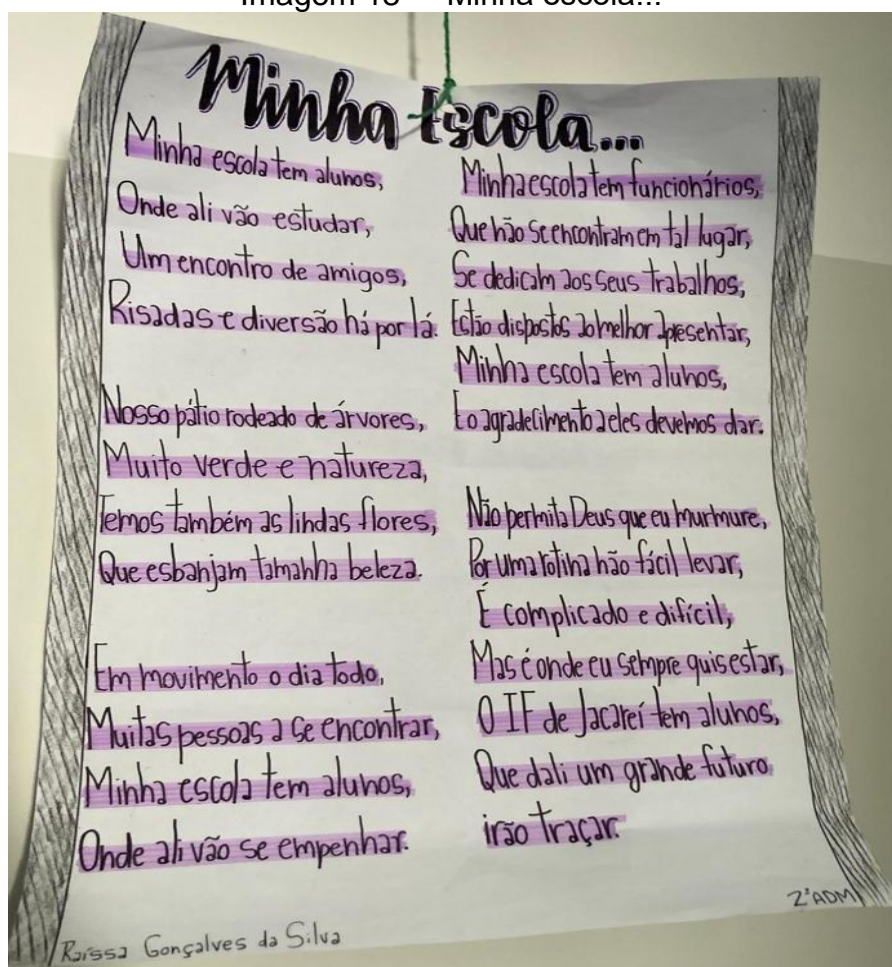 Minha Escola...
Minha escola tem alunos,
Onde ali vão estudar,
Um encontro de amigos,
Risadas e diversão há por lá.
Nosso pátio rodeado de árvores,
Muito verde e natureza,
Temos também as lindas flores,
Que esbanjam tamanha beleza.
Em movimento o dia todo,
Muitas pessoas a se encontrar,
Minha escola tem alunos,
Onde ali vão se empenhar.
Minha escola tem funcionários,
Que não se encontram em tal lugar,
Se dedicam aos seus trabalhos,
Estão dispostos ao melhor apresentar,
Minha escola tem alunos,
E o agradecimento a eles devemos dar.
Não permita Deus que eu murmure,
Por uma rotina não fácil levar,
É complicado e difícil,
Mas é onde eu sempre quis estar,
O IF de Jacareí tem alunos,
Que dali um grande futuro
irão traçar.
2°ADM
Raíssa Gonçalves da Silva